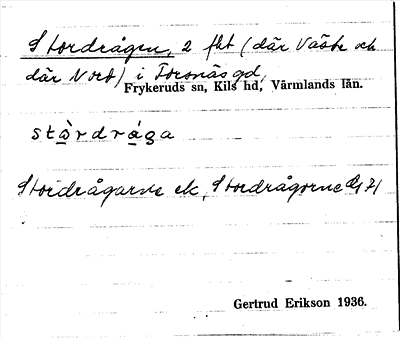 Stordrågen, 2 fkt (där Väste och
där Nord) i Torsnäs gd,
Frykeruds sn, Kils hd, Värmlands län.
stòrdråga
Stordrågarne ek, Stordrågorne
Gertrud Erikson 1936.